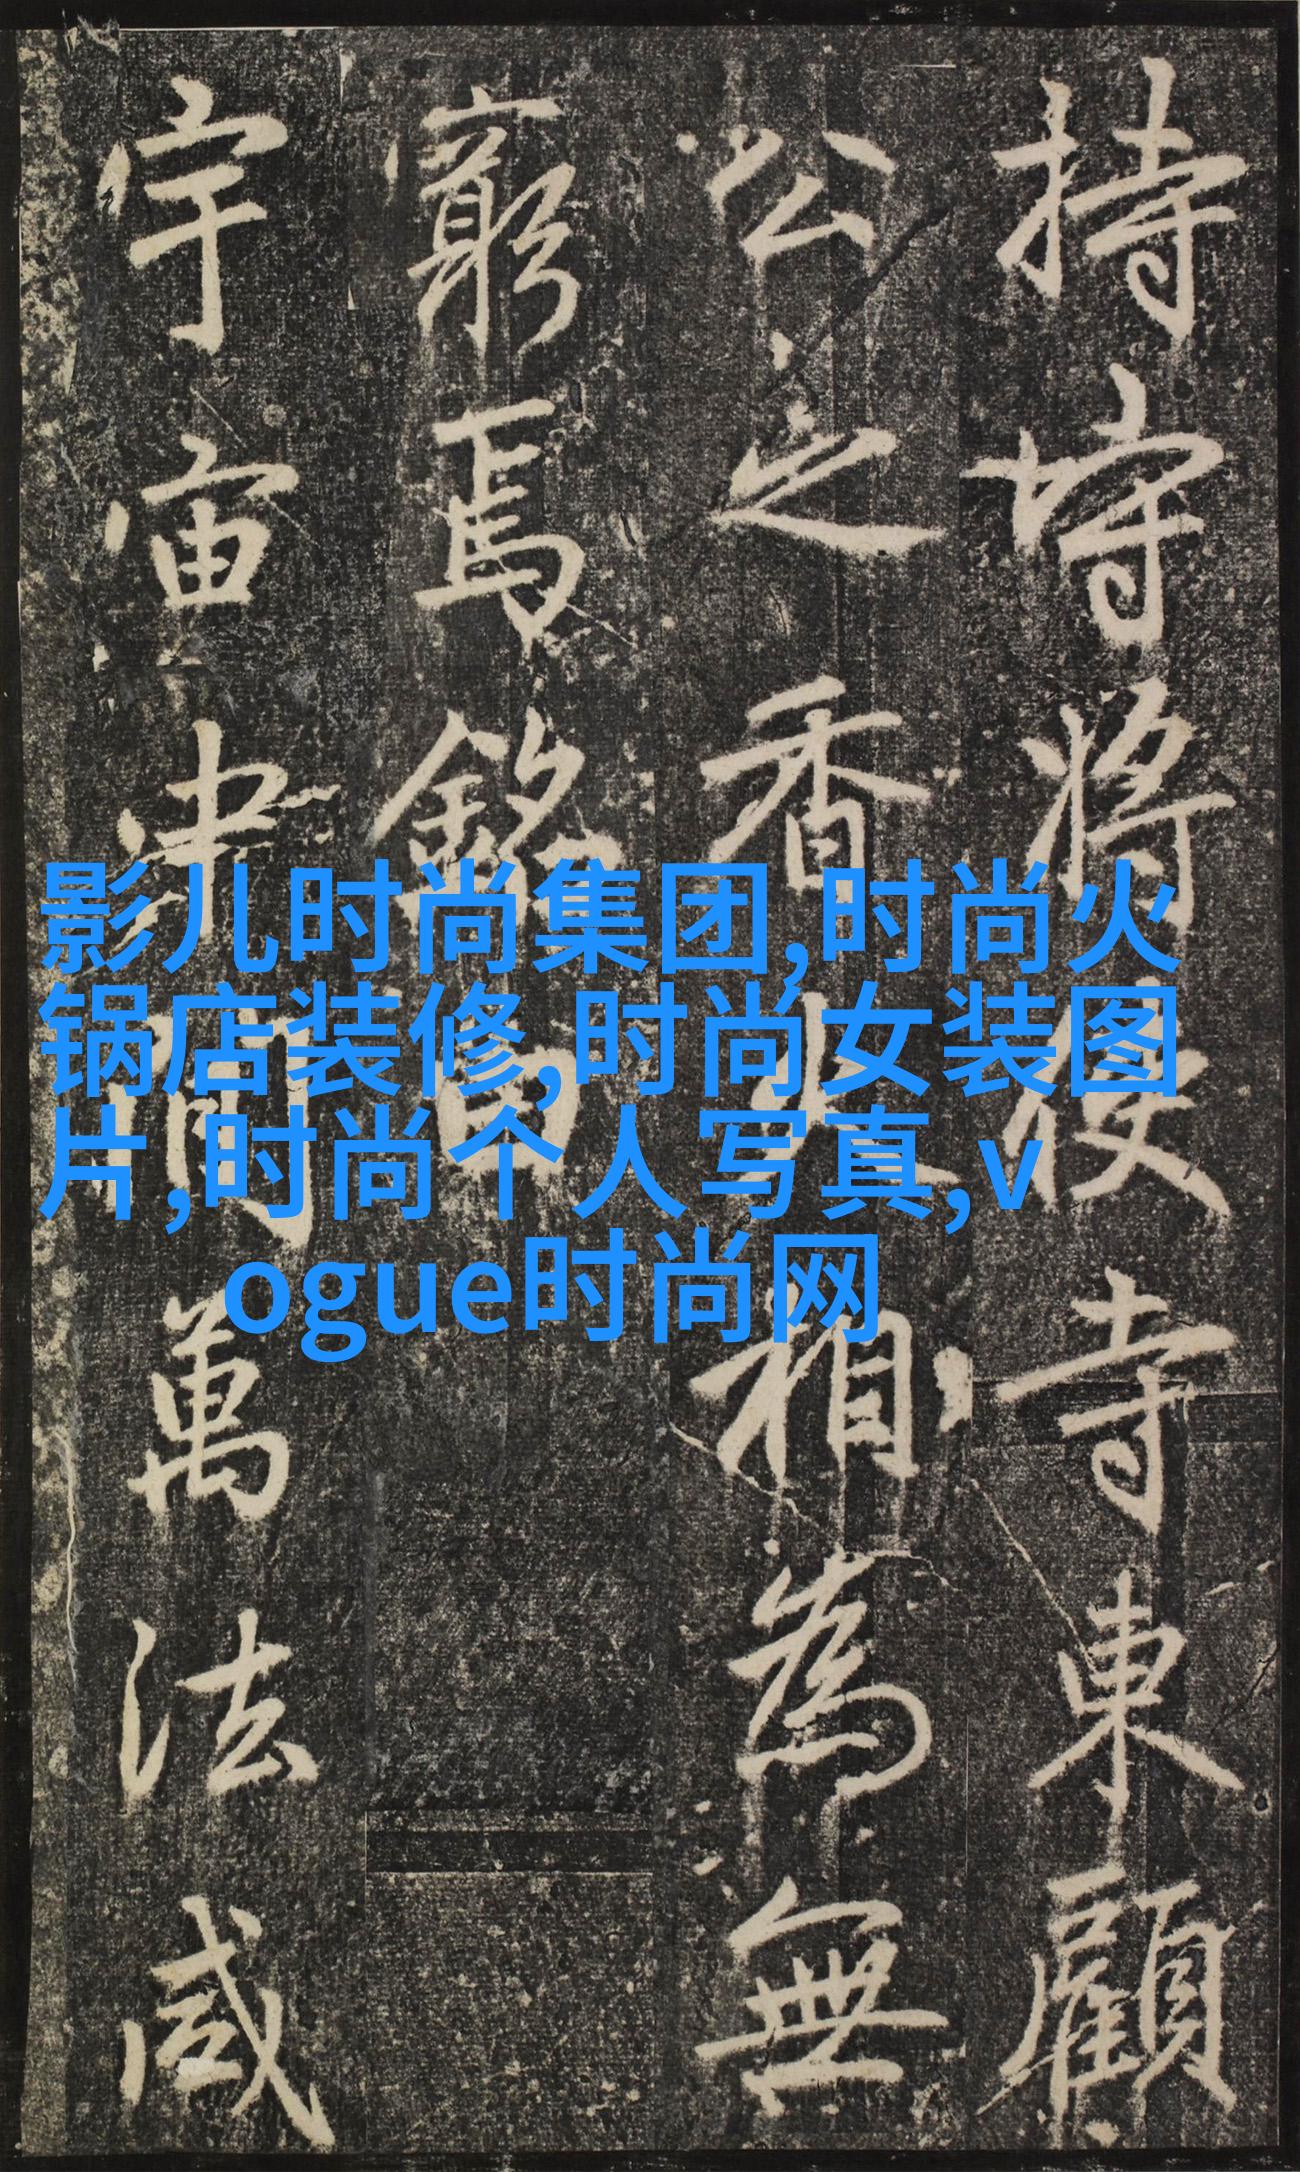 持將使寺東顧
公之香火相為無
窮焉銘曰
宇宙萬法咸
影儿时尚集团,时尚火
锅店装修,时尚女装图
片,时尚个人写真,v
ogue时尚网